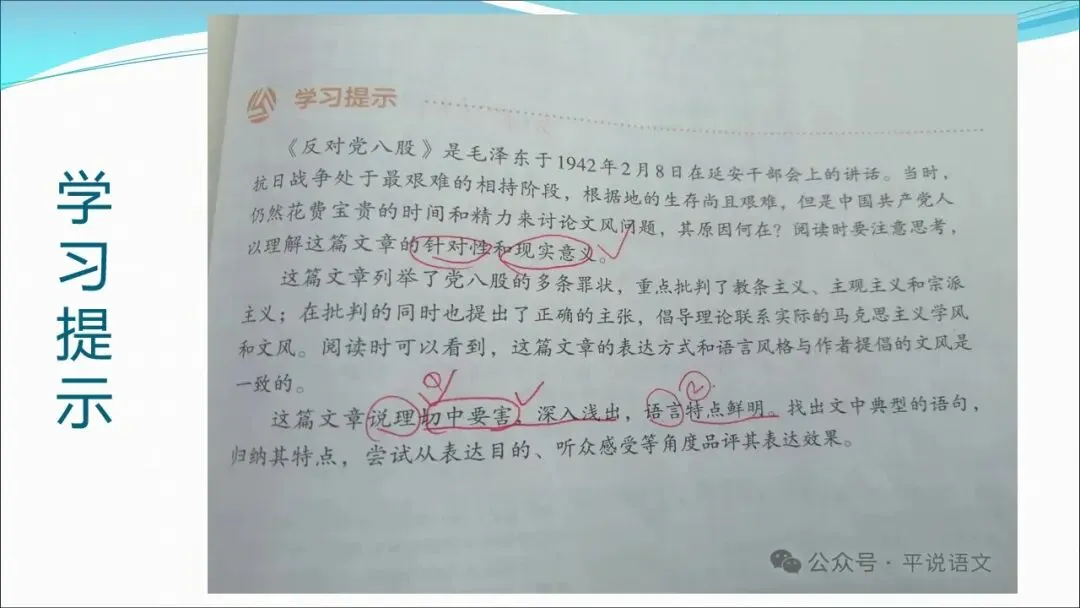 学习提示
学习提示
《反对党八股》是毛泽东于1942年2月8日在延安干部会上的讲话。当时，
抗日战争处于最艰难的相持阶段，根据地的生存尚且艰难，但是中国共产党人
仍然花费宝贵的时间和精力来讨论文风问题，其原因何在？阅读时要注意思考，
以理解这篇文章的针对性和现实意义。
这篇文章列举了党八股的多条罪状，重点批判了教条主义、主观主义和宗派
主义；在批判的同时也提出了正确的主张，倡导理论联系实际的马克思主义学风
和文风。阅读时可以看到，这篇文章的表达方式和语言风格与作者提倡的文风是
一致的。
①
②
这篇文章说理切中要害，深入浅出，语言特点鲜明。找出文中典型的语句，
归纳其特点，尝试从表达目的、听众感受等角度品评其表达效果。
公众号·平说语文